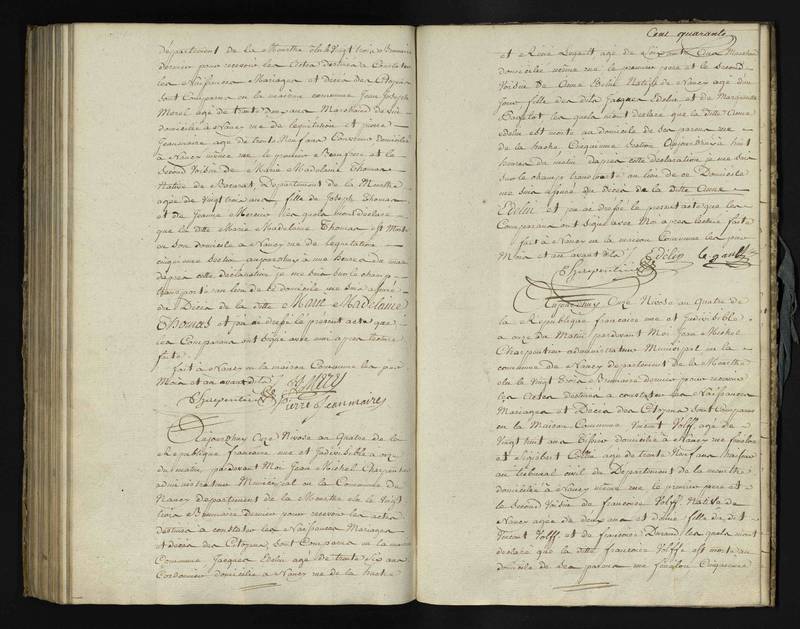 département de la Meurthe élu le Vingt trois Brumaire
dernier pour recevoir les Actes destinés à Constater
les Naissances Mariages et Décès des Citoyens
sont Comparus en la maison commune Jean Joseph
Morel agé de trente ans Marchand
domicilié à Nancy rue de legislation et pierre
Jeanmaire agé de trente Neuf ans domicilié
à Nancy même rue le premier et le
Second Voisin de Marie Madelaine Thomas
Native de Département de la Meurthe
agée de Vingt trois ans, fille de Joseph Thomas
et de Jeanne les quels m'ont déclaré
que la ditte Marie Madelaine Thomas est Morte
en Son domicile à Nancy rue de legislation
cinquieme section aujourdhuy à une heure du matin
dapres cette déclaration je me suis sur le champ
transporté au lieu de ce domicile me suis assuré
du Décès de la ditte Marie Madelaine
Thomas et j'en ai dressé le présent acte que
les Comparans ont signé avec moi apres lecture
faite
fait à Nancy en la maison Commune les jour
Mois et an avant dits
Charpentier Pierre Jeanmaire
Aujourdhuy Onze Nivose an Quatre de la
République francaise une et Indivisible à onze
du matin, pardevant Moi Jean Michel Charpentier
administrateur Municipal en la Commune de
Nancy département de la Meurthe élu le Vingt
trois Brumaire Dernier pour recevoir les actes
destinés à constater les Naissances Mariages
et décès des Citoyens, sont Comparus en la maison
Commune Jacques Edelin agé de trente Six ans
Cordonnier domicilié à Nancy rue de la hache
Cent quarante
et Rémi Legault agé de Marchand
domicilié même rue le premier pere et le second
Voisin de Anne Edelin Native de Nancy agée d'un
jour fille des dits Jacques Edelin et de Marguerite
les quels m'ont declaré que la Ditte Anne
Edelin est morte au domicile de ses parens rue
de la hache Cinquieme Section Aujourdhuy à huit
heures du matin dapres cette déclaration je me suis
sur le champ transporté au lieu de ce Domicile
me suis assuré du Décès de la ditte Anne
Edelin et j'en ai dressé le présent acte que les
Comparans ont signé avec Moi apres lecture faite
fait à Nancy en la maison Commune les jour
Mois et an avant dits Edelin Legault
Charpentier
Aujourdhuy Onze Nivose an Quatre de
la République francaise une et Indivisible
à onze du Matin pardevant Moi Jean Michel
Charpentier administrateur Municipal en la
commune de Nancy département de la Meurthe
élu le Vingt Trois Brumaire dernier pour recevoir
les Actes destinés à constater les Naissances
Mariages et Décès des Citoyens sont Comparus
en la Maison Commune Vincent Volff agé de
Vingt huit ans domicilié à Nancy rue fénélon
et Sigisbert agé de trente Neuf ans huissier
au tribunal civil du Département de la meurthe
domicilié à Nancy même rue le premier pere et
le Second Voisin de francoise Volff Native de
Nancy agée de deux ans et demi fille du dit
Vincent Volff et de francoise Durand les quels m'ont
declaré que la ditte francoise Volff est morte au
domicile de ses parens rue fénélon Cinquieme